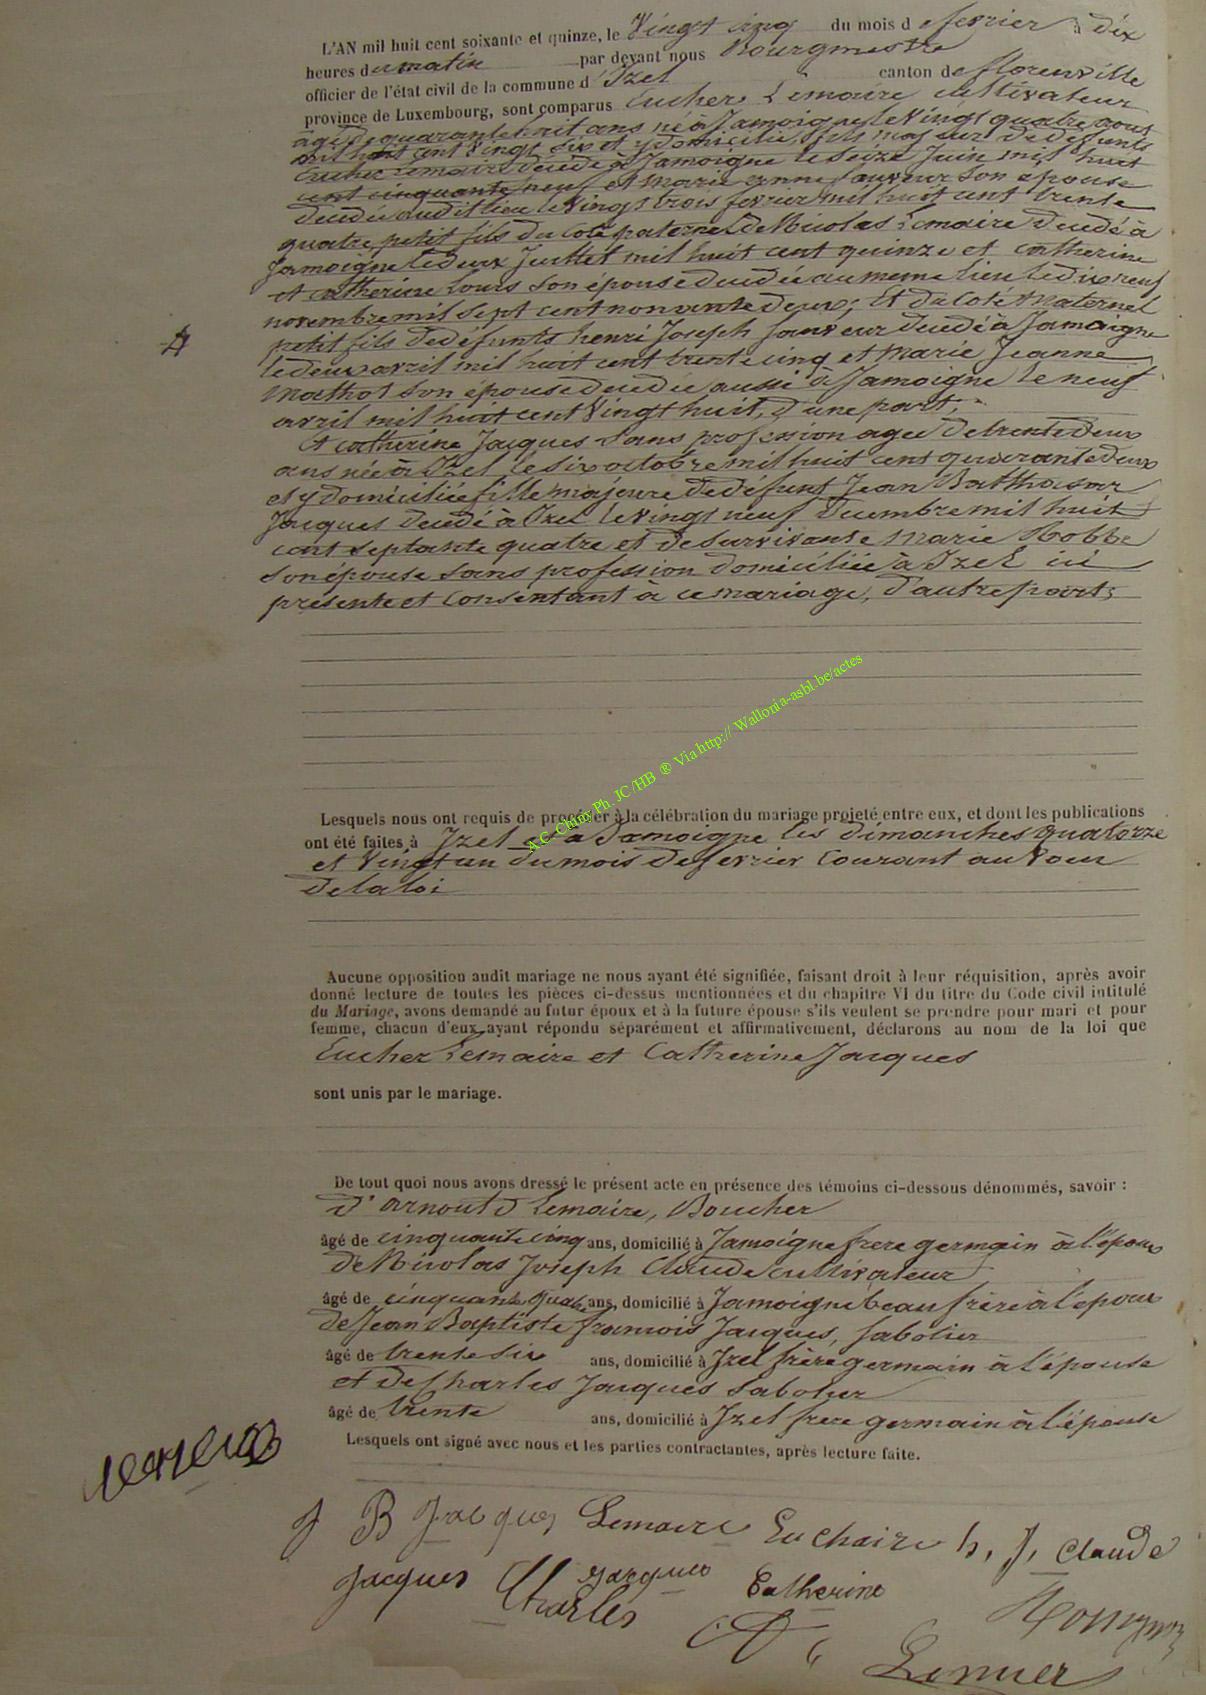 L'AN mil huit cent soixante et quinze, le Vingt cinq du mois d e fevrier à dix
heures du matin par devant nous Bourgmestre
officier de l'état civil de la commune d' Izel canton de florenville
province de Luxembourg, sont comparus Eucher Lemaire cultivateur
âgé de quarante huit ans né à Jamoigne le Vingt quatre aout
mil huit cent Vingt six et y domicilié, fils majeur de défunts
Eucher Lemaire décédé à Jamoigne le seize Juin mil huit
cent cinquante neuf et Marie anne Sauveur son épouse
décédée audit lieu le Vingt trois fevrier mil huit cent trente
quatre, petit fils du coté paternel de Nicolas Lemaire décédé à
Jamoigne le deux Juillet mil huit cent quinze et catherine
et catherine Lours son épouse décédée au meme lieu le dix neuf
novembre mil sept cent nonvante deux; Et du coté Maternel
petit fils de défunts henri Joseph Sauveur décédé à Jamoigne
le deux avril mil huit cent trente cinq et Marie Jeanne
Mathot son épouse décédée aussi à Jamoigne le neuf
avril mil huit cent Vingt huit, d'une part,
Et catherine Jacques sans profession agée de trente deux
ans née à Izel le six octobre mil huit cent quarante deux
et y domiciliée fille majeure de défunt Jean Balthasar
Jacques décédé à Izel le vingt neuf décembre mil huit
cent septante quatre et de survivante Marie Hobbe
son épouse sans profession domiciliée à Izel ici
présente et consentant à ce mariage, d'autre part;
Lesquels nous ont requis de procéder à la célébration du mariage projeté entre eux, et dont les publications
ont été faites à Izel et à Jamoigne les dimanches quatorze
et Vingt un du mois de fevrier courant au Voeu
de la loi
A.C. Chiny Ph. JC/HB ® Via http:// Wallonia-asbl.be/actes
Aucune opposition audit mariage ne nous ayant été signifiée, faisant droit à leur réquisition, après avoir
donné lecture de toutes les pièces ci-dessus mentionnées et du chapitre VI du titre du Code civil intitulé
du Mariage, avons demandé au futur époux et à la future épouse s'ils veulent se prendre pour mari et pour
femme, chacun d'eux ayant répondu séparément et affirmativement, déclarons au nom de la loi que
Eucher Lemaire et Catherine Jacques
sont unis par le mariage.
De tout quoi nous avons dressé le présent acte en présence des témoins ci-dessous dénommés, savoir :
d' arnould Lemaire, Boucher
âgé de cinquante cinq ans, domicilié à Jamoigne frere germain à l'époux
de Nicolas Joseph Claude cultivateur
âgé de cinquante quatre ans, domicilié à Jamoigne beau frère à l'époux
de Jean Baptiste francois Jacques, sabotier
âgé de trente six ans, domicilié à Izel frère germain à l'épouse
et de Charles Jacques sabotier
âgé de trente ans, domicilié à Izel frere germain à l'épouse
Lesquels ont signé avec nous et les parties contractantes, après lecture faite.
J B Jacques Lemaire Euchaire h, J, Claude
Jacques Charles Jacques Catherine